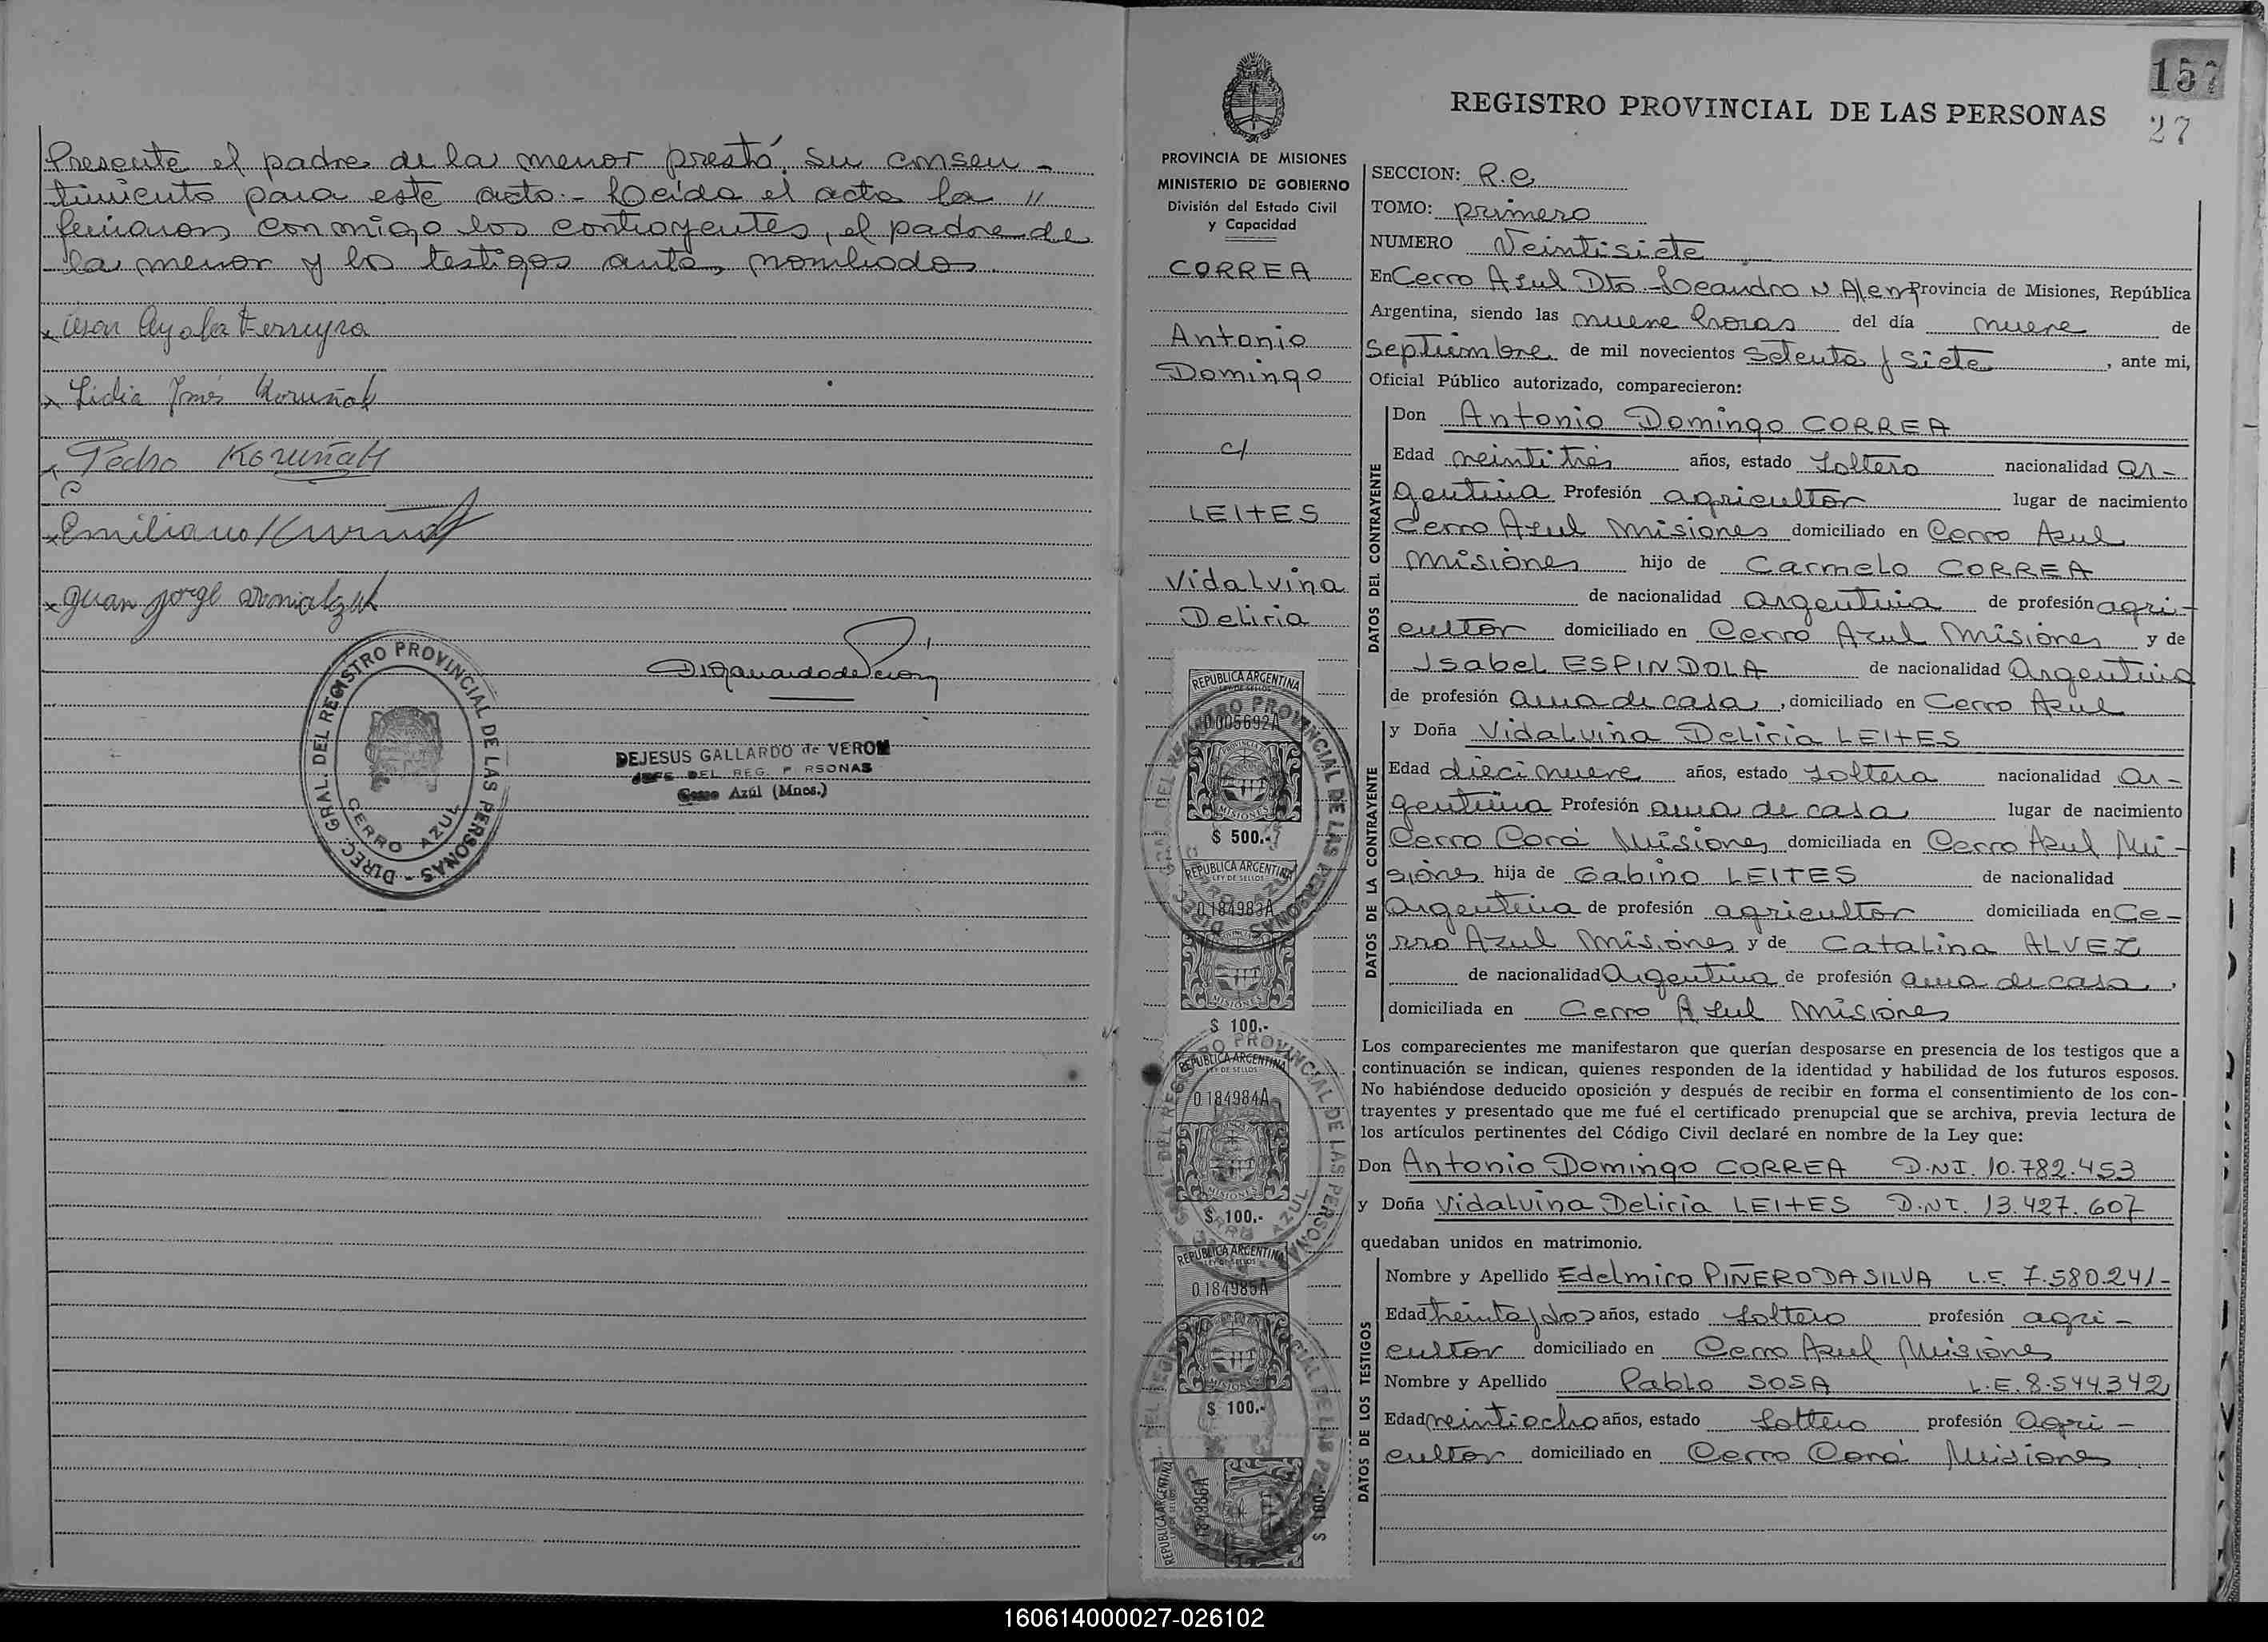 Presente el padre de la menor prestó su consen-
timiento para este acto.- Leída el acta la "
firmaron conmigo los contrayentes, el padre de
la menor y los testigos ante nombrados.
x Cesar Ayala Ferreyra
x Lidia Inés Koruñak
x Pedro Koruñak
x Emiliano Kuruñak
x Juan Jorge
DIREC. GRAL. DEL REGISTRO PROVINCIAL DE LAS PERSONAS -
CERRO AZUL
DEJESUS GALLARDO de VERON
JEFE DEL REG. PERSONAS
Cerro Azúl (Mnes.)
157
27
REGISTRO PROVINCIAL DE LAS PERSONAS
PROVINCIA DE MISIONES
MINISTERIO DE GOBIERNO
División del Estado Civil
y Capacidad
CORREA
Antonio
Domingo
c/
LEITES
Vidalvina
Deliria
REPUBLICA ARGENTINA
LEY DE SELLOS
0.005692A
MISIONES
$ 500.-
REPUBLICA ARGENTINA
LEY DE SELLOS
0.184983A
MISIONES
$ 100.-
REPUBLICA ARGENTINA
LEY DE SELLOS
0.184984A
MISIONES
$ 100.-
REPUBLICA ARGENTINA
LEY DE SELLOS
0.184985A
$ 100.-
REPUBLICA ARGENTINA
LEY DE SELLOS
0.184986A
$ 100.-
SECCION: R.C
TOMO: primero
NUMERO Veintisiete
En Cerro Azul Dto Leandro N Alem Provincia de Misiones, República
Argentina, siendo las nueve horas del día nueve de
Septiembre de mil novecientos Setenta y Siete, ante mi,
Oficial Público autorizado, comparecieron:
DATOS DEL CONTRAYENTE
Don Antonio Domingo CORREA
Edad veintitres años, estado Soltero nacionalidad ar-
gentina Profesión agricultor lugar de nacimiento
Cerro Azul Misiones domiciliado en Cerro Azul
Misiones hijo de Carmelo CORREA
de nacionalidad argentina de profesión agri-
cultor domiciliado en Cerro Azul Misiones y de
Isabel ESPINDOLA de nacionalidad Argentina
de profesión ama de casa, domiciliado en Cerro Azul
DATOS DE LA CONTRAYENTE
y Doña Vidalvina Deliria LEITES
Edad diecinueve años, estado soltera nacionalidad ar-
gentina Profesión ama de casa lugar de nacimiento
Cerro Corá Misiones domiciliada en Cerro Azul Mi-
siones hija de Gabino LEITES de nacionalidad
Argentina de profesión agricultor domiciliada en Ce-
rro Azul Misiones y de Catalina ALVEZ
de nacionalidad Argentina de profesión ama de casa,
domiciliada en Cerro Azul Misiones
Los comparecientes me manifestaron que querían desposarse en presencia de los testigos que a
continuación se indican, quienes responden de la identidad y habilidad de los futuros esposos.
No habiéndose deducido oposición y después de recibir en forma el consentimiento de los con-
trayentes y presentado que me fué el certificado prenupcial que se archiva, previa lectura de
los artículos pertinentes del Código Civil declaré en nombre de la Ley que:
Don Antonio Domingo CORREA D.NI. 10.782.453
y Doña Vidalvina Deliria LEITES D.NI. 13.427.607
quedaban unidos en matrimonio.
DATOS DE LOS TESTIGOS
Nombre y Apellido Edelmiro PIÑERO DA SILVA L.E. 7.580.241-
Edad treinta y dos años, estado soltero profesión agri-
cultor domiciliado en Cerro Azul Misiones
Nombre y Apellido Pablo SOSA L.E. 8.544342
Edad veintiocho años, estado Soltero profesión agri-
cultor domiciliado en Cerro Corá Misiones
160614000027-026102